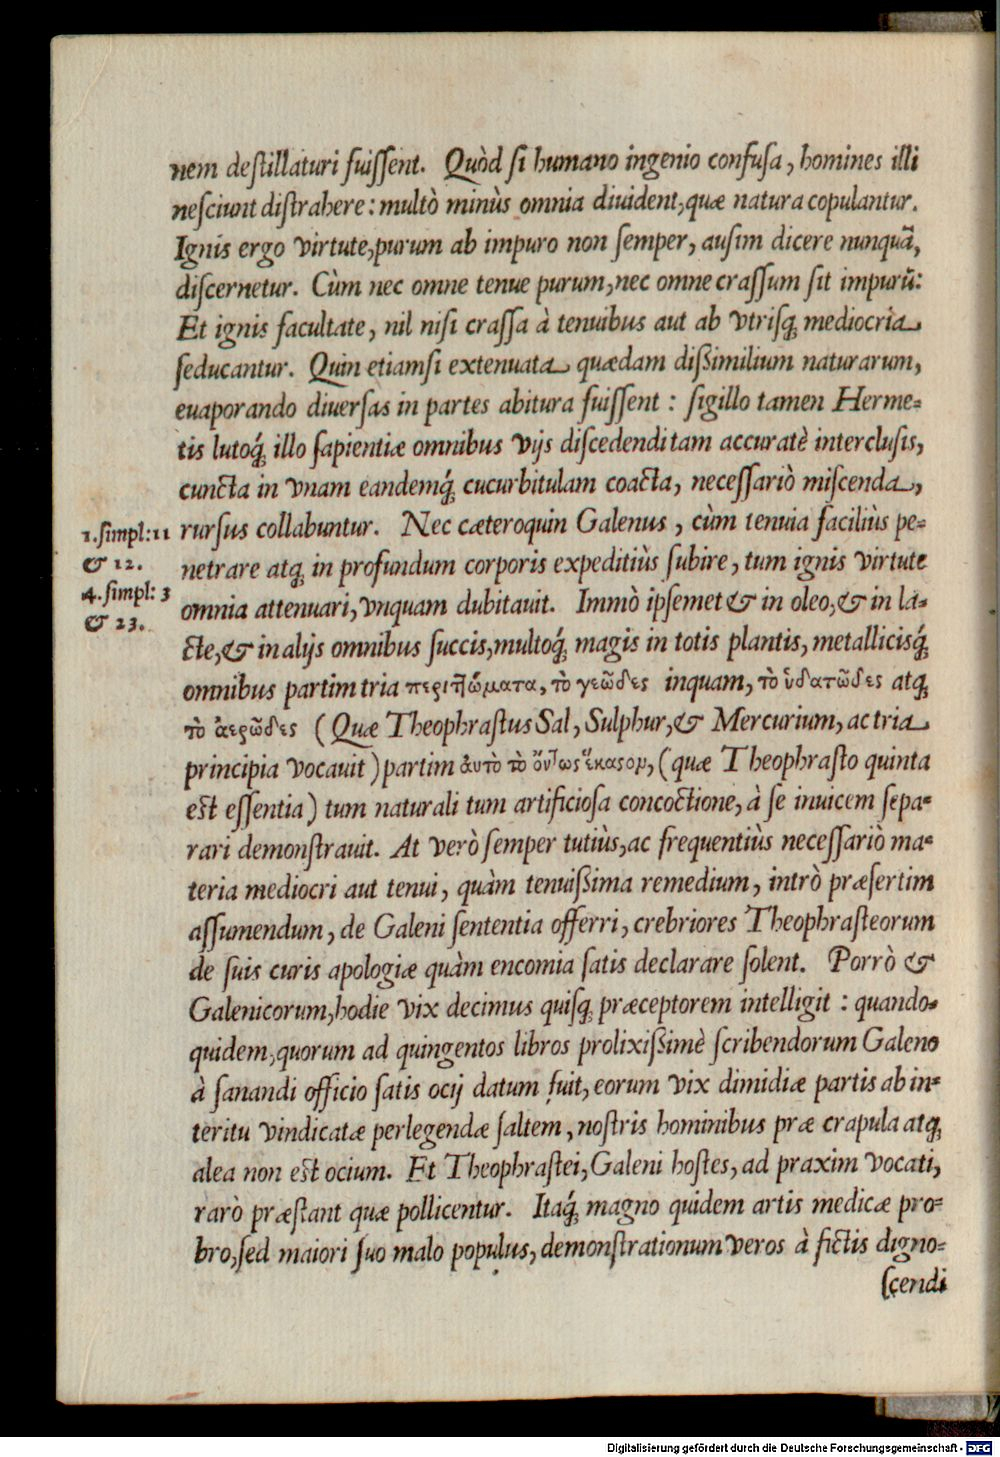 nem destillaturi fuissent. Quòd si humano ingenio confusa, homines illi
nesciunt distrahere: multò minùs omnia diuident, quæ natura copulantur.
Ignis ergo virtute, purum ab impuro non semper, ausim dicere nunquā,
discernetur. Cùm nec omne tenue purum, nec omne crassum sit impurū:
Et ignis facultate, nil nisi crassa à tenuibus aut ab vtrisq; mediocria
seducantur. Quin etiamsi extenuata quædam dißimilium naturarum,
euaporando diuersas in partes abitura fuissent: sigillo tamen Herme=
tis lutoq́; illo sapientiæ omnibus vijs discedendi tam accuratè interclusis,
cuncta in vnam eandemq́; cucurbitulam coacta, necessariò miscenda,
rursus collabuntur. Nec cæteroquin Galenus, cùm tenuia faciliùs pe=
1. simpl: 11
& 12.
4. simpl: 3
& 23.
netrare atq; in profundum corporis expeditiùs subire, tum ignis virtute
omnia attenuari, vnquam dubitauit. Immò ipsemet & in oleo, & in la=
cte, & in alijs omnibus succis, multoq́; magis in totis plantis, metallicisq́;
omnibus partim tria περιττώματα, τὸ γεῶδες inquam, τὸ ὑδατῶδες atq;
τὸ ἀερῶδες (Quæ Theophrastus Sal, Sulphur, & Mercurium, ac tria
principia vocauit) partim ἀυτὸ τὸ ὄντως ἕκαστον, (quæ Theophrasto quinta
est essentia) tum naturali tum artificiosa concoctione, à se inuicem sepa=
rari demonstrauit. At verò semper tutiùs, ac frequentiùs necessariò ma=
teria mediocri aut tenui, quàm tenuißima remedium, intrò præsertim
assumendum, de Galeni sententia offerri, crebriores Theophrasteorum
de suis curis apologiæ quàm encomia satis declarare solent. Porrò &
Galenicorum, hodie vix decimus quisq; præceptorem intelligit: quando=
quidem, quorum ad quingentos libros prolixißimè scribendorum Galeno
à sanandi officio satis ocij datum fuit, eorum vix dimidiæ partis ab in=
teritu vindicatæ perlegendæ saltem, nostris hominibus præ crapula atq;
alea non est ocium. Et Theophrastei, Galeni hostes, ad praxim vocati,
rarò præstant quæ pollicentur. Itaq́; magno quidem artis medicæ pro=
bro, sed maiori suo malo populus, demonstrationum veros à fictis digno=
scendi
Digitalisierung gefördert durch die Deutsche Forschungsgemeinschaft - DFG